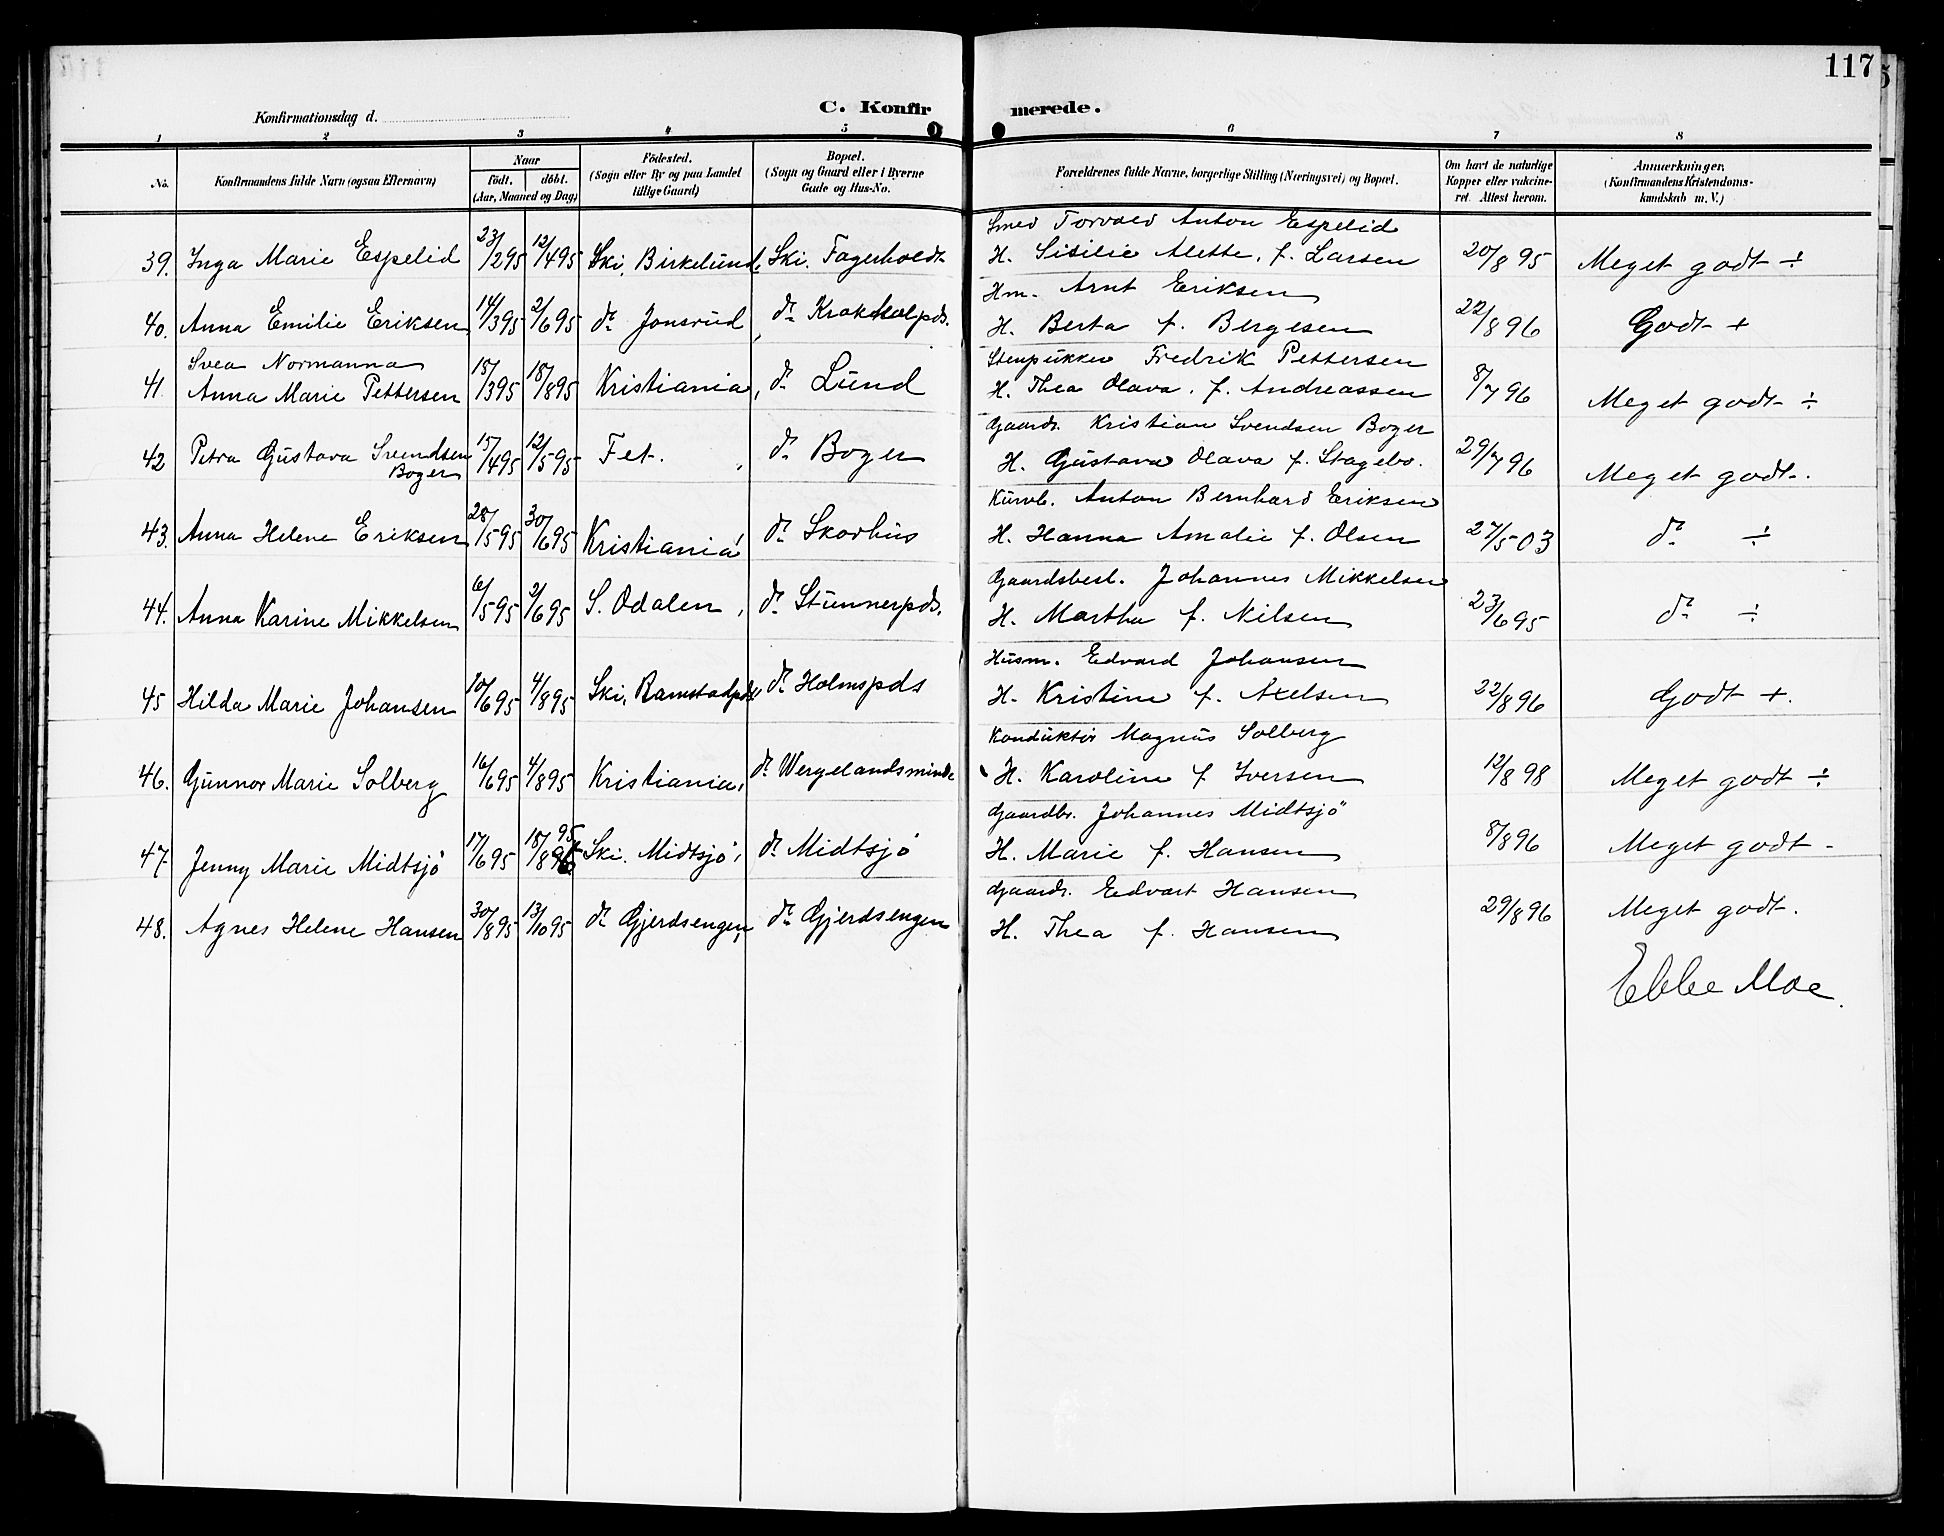 117
C. Konfirmerede.
Konfirmationsdag d.
1 2 3 4 5 6 7 8
No. Konfirmandens fulde Navn (ogsaa Efternavn) Naar født, døbt. (Aar, Maaned og Dag) Fødested. (Sogn eller By og paa Landet tillige Gaard) Bopæl. (Sogn og Gaard eller i Byerne Gade og Hus-No. Forældrenes fulde Navne, borgerlige Stilling (Næringsvei) og Bopæl. Om havt de naturlige Kopper eller vakcineret. Attest herom. Anmærkninger. (Konfirmandens Kristendomskundskab m. V.)
Smed Torvald Anton Espelid
39. Inga Marie Espelid 23/2 95 12/4 95 Ski, Birkelund, Ski. Fagerholdt H. Sisilie Alette, f. Larsen 20/8 95 Meget godt ÷
Hm. Arnt Eriksen
40. Anna Emilie Eriksen 14/3 95 2/6 95 do Jonsrud, do Krokholpds. H. Berta f. Bergesen 22/8 96 Godt +
Svea Normanna Stenpukker Fredrik Pettersen
41 Anna Marie Pettersen 15/3 95 18/8 95 Kristiania, do Lund H. Thea Olava, f. Andreassen 8/7 96 Meget godt ÷
Gaards. Kristian Svendsen Boger
42 Petra Gustava Svendsen Boger 15/4 95 12/5 95 Fet. , do Boger H. Gustava Olava f. Stagebo. 29/7 96 Meget godt.
Kurvb. Anton Bernhard Eriksen
43. Anna Helene Eriksen 28/5 95 30/6 95 Kristiania, do Skorhus H. Hanna Amalie f. Olsen 27/5 03 do ÷
Gaardsbest. Johannes Mikkelsen
44. Anna Karine Mikkelsen 6/5 95 2/6 95 S. Odalen, do Stunnerpds. H. Martha f. Nilsen 23/6 95 do ÷
Husm. Edvard Johansen
45 Hilda Marie Johansen 10/6 95 4/8 95 Ski, Ramstadpds do Holmspds H. Kristine f. Axelsen 22/8 96 Godt +.
Konduktør Magnus Solberg
46. Gunnor Marie Solberg 16/6 95 4/8 95 Kristiania, do Wergelandsminde H. Karoline f Iversen 12/8 98 Meget godt ÷
Gaardbr. Johannes Midtsjö
47 Jenny Marie Midtsjö 17/6 95 18/8 95 Ski. Midtsjö, do Midtsjö H. Marie f. Hansen 8/8 96 Meget godt -
Gaards. Edvart Hansen
48. Agnes Helene Hansen 30/8 95 13/10 95 do Gjerdsengen, do Gjerdsengen H. Thea f. Hansen 29/8 96 Meget godt.
Ebbe Moe.